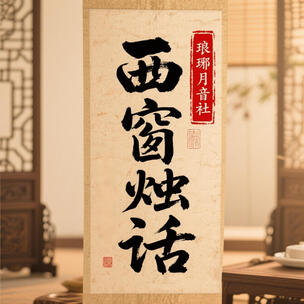 琅琊月音社
西窗烛话